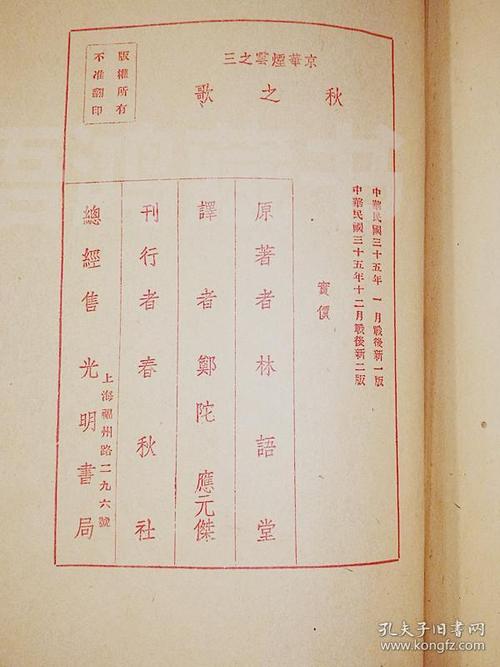 京華煙雲之三
秋之歌
版權所有
不准翻印
中華民國三十五年一月戰後新一版
中華民國三十五年十二月戰後新二版
實價
原著者林語堂
譯者鄭陀應元傑
刊行者春秋社
上海福州路二九六號
總經售光明書局
孔夫子旧书网
kongfz.com